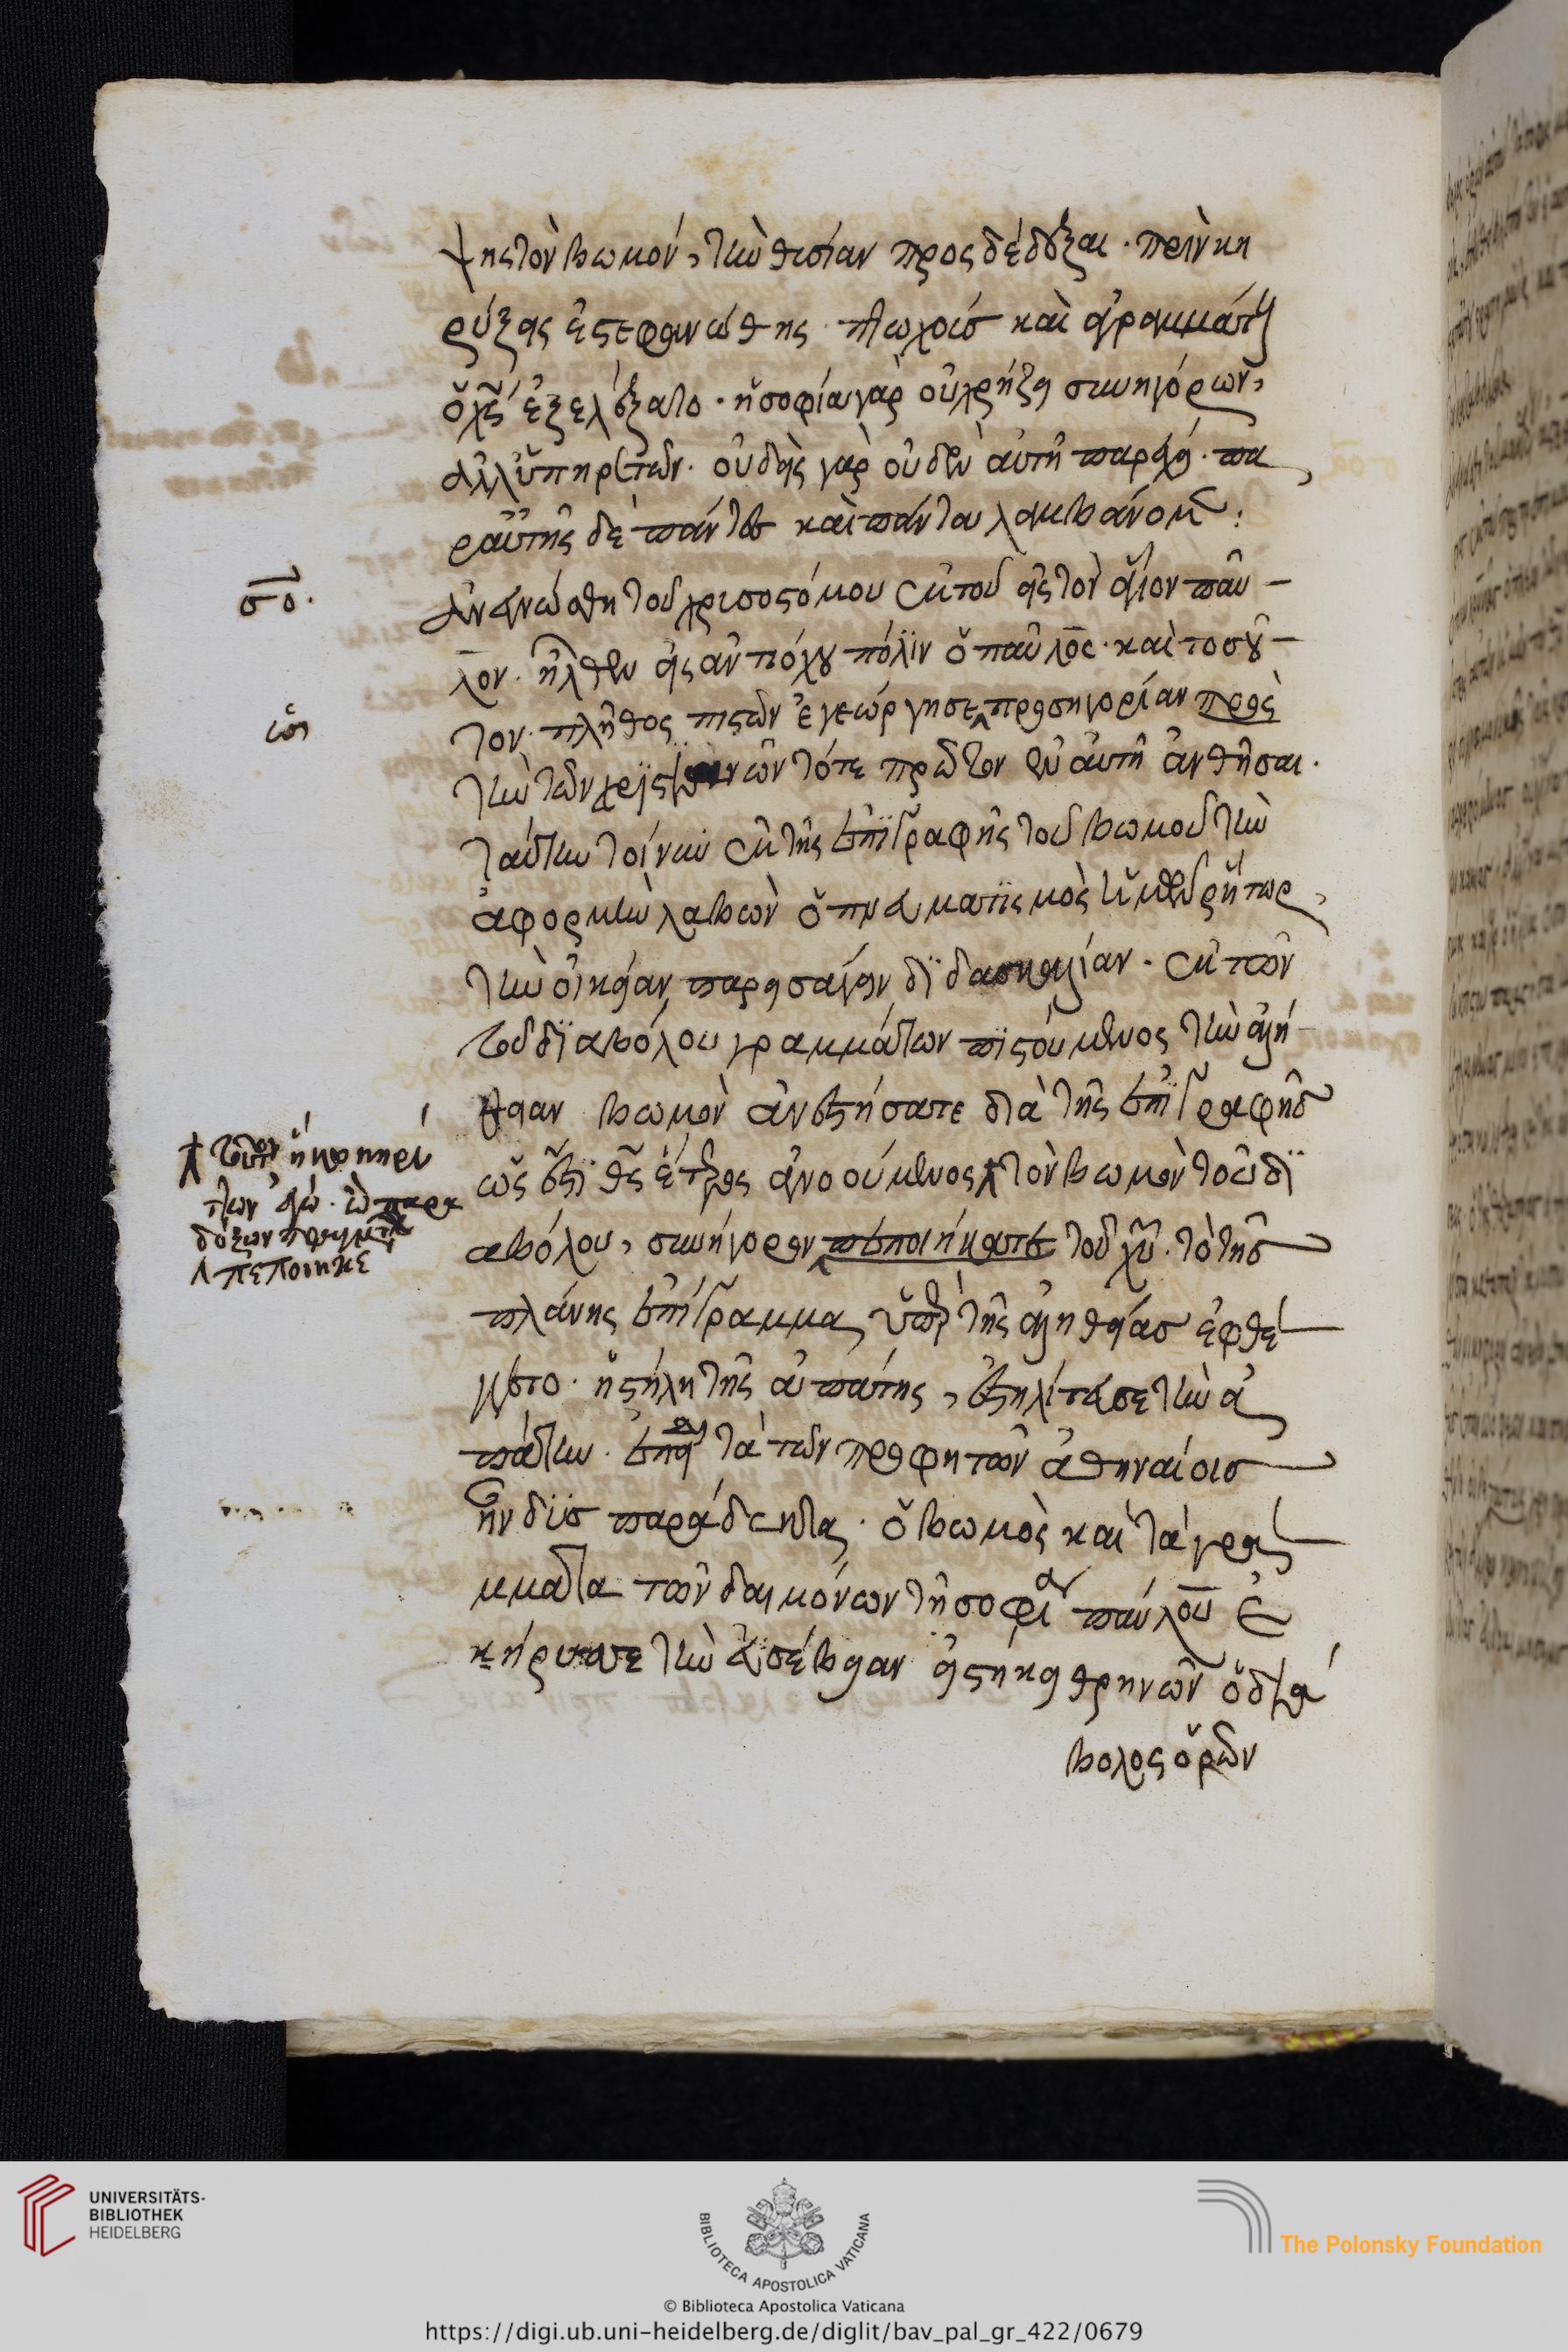 ψης τὸν βωμόν, τὴν θυσίαν προςδέδεξαι · πρὶν κη
ρύξας ἐστεφανώθης · πτωχοὺς καὶ ἀγραμμάτους
ὁ χς ἐξελέξατο · ἡ σοφία γὰρ οὐ χρήζει συνηγόρων,
ἀλλ' ὑπηρετῶν · οὐδεὶς γὰρ οὐδὲν αὐτῇ παρέχει · πα
ρ' αὐτῆς δὲ πάντες καὶ πάντα λαμβάνομεν :
Ἀνεγνώσθη τοῦ χρυσοστόμου ἐκ τοῦ εἰς τὸν ἅγιον παῦ
λον · ἦλθεν εἰς ἀντιόχου πόλιν ὁ παῦλος · καὶ τοσοῦ
τον πλῆθος πιστῶν ἐγεώργησε, προσηγορίαν πρὸς
τὴν τῶν χριστιανῶν τότε πρῶτον ἐν αὐτῇ ἀνθῆσαι ·
ταύτην τοίνυν ἐκ τῆς ἐπιγραφῆς τοῦ βωμοῦ τὴν
ἀφορμὴν λαβὼν ὁ πνευματικὸς ἡμῶν ῥήτωρ
τὴν οἰκείαν παρεισάγειν διδασκαλίαν · ἐκ τῶν
τοῦ διαβόλου γραμμάτων πιστούμενος τὴν ἀλή
θειαν βωμὸν ἀνεστήσατε διὰ τῆς ἐπιγραφῆς
ὡς ἔστι θς ἕτερος ἀγνοούμενος τὸν βωμὸν τοῦ δι
αβόλου, συνήγορον πεποιήκατε τοῦ χυ · τὸ τῆς
πλάνης ἐπίγραμμα, ὑπὲρ τῆς ἀληθείας ἐφθέ
γξατο · ἡ στήλη τῆς ἀπάτης, ἐστηλίτευσε τὴν ἀ
πάτην · ἐπειδὴ τὰ τῶν προφητῶν ἀθηναίοις
ἦν δὶς παράδεκτα · ὁ βωμὸς καὶ τὰ γρά
μματα τῶν δαιμόνων τῇ σοφίᾳ παύλου ἐ
κήρυττε τὴν εὐσέβειαν εἱστήκει θρηνῶν ὁ διά
βολος ὁρῶν
σο.
ὡς
τοῦτον ἡ κρηπὶς
τῶν ἐγὼ · ὢ παρα
δόξων πραγμάτων
πεποίηκε
UNIVERSITÄTS-
BIBLIOTHEK
HEIDELBERG
BIBLIOTECA APOSTOLICA VATICANA
The Polonsky Foundation
© Biblioteca Apostolica Vaticana
https://digi.ub.uni-heidelberg.de/diglit/bav_pal_gr_422/0679